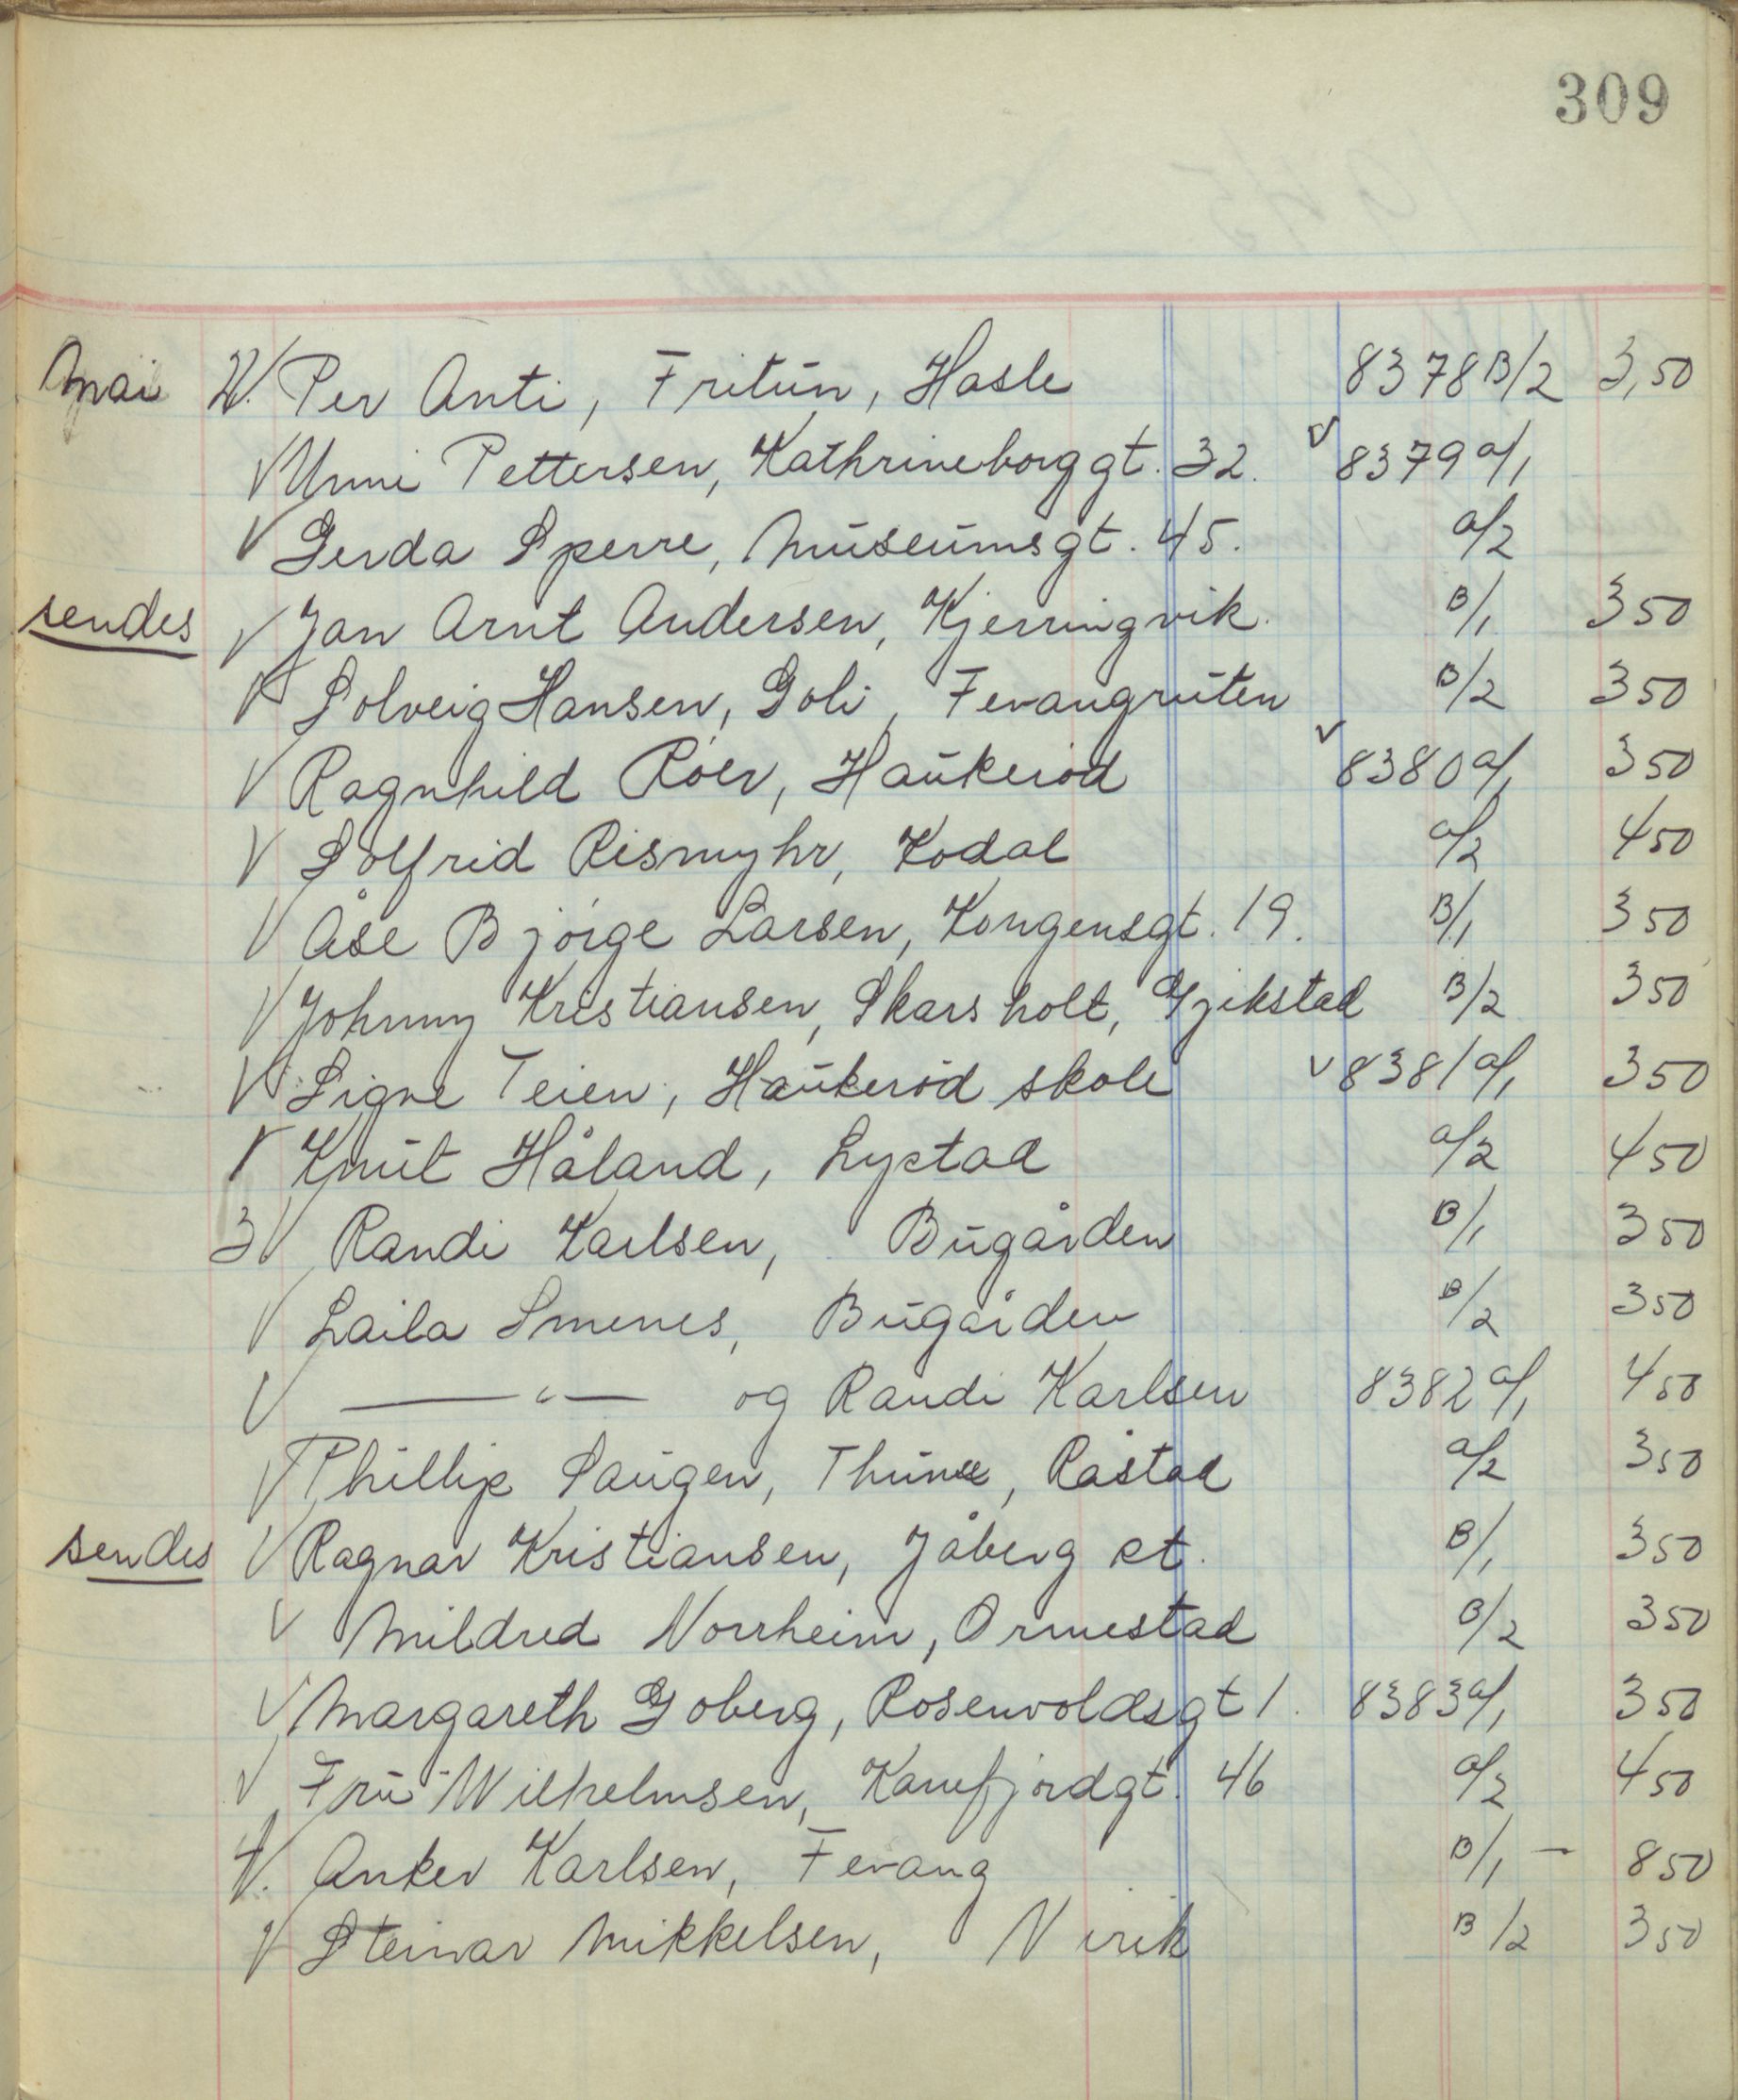 309
Mai 2 V. Per Anti, Fritun, Hasle 8378 B/2 3,50
V Unni Pettersen, Kathrineborggt. 32. V 8379 a/1
V Gerda Sperre, Museumsgt. 45. a/2
sendes V Jan Arnt Andersen, Kjerringvik. B/1 350
V Solveig Hansen, Goli, Fevangruten B/2 350
V Ragnhild Röer, Haukeröd V 8380 a/1 350
V Solfrid Rismyhr, Kodal a/2 450
V Åse Bjørge Larsen, Kongensgt. 19. B/1 350
V Johnny Kristiansen, Skarsholt, Gjekstad B/2 350
V Signe Teien, Haukeröd skole V 8381 a/1 350
V Knut Håland, Lystad a/2 450
3 V Randi Karlsen, Bugården B/1 350
V Laila Smenes, Bugården B/2 350
V —— " — og Randi Karlsen 8382 a/1 450
V Phillip Saugen, Råstad a/2 350
sendes V Ragnar Kristiansen, Jåberg st. B/1 350
V Mildred Norrheim, Ormestad B/2 350
V Margareth Goberg, Rosenvoldsgt 1. 8383 a/1 350
V Fru Wilhelmsen, Kamfjordgt. 46 a/2 450
4 V. Anker Karlsen, Fevang B/1 — 850
V Steinar Mikkelsen, Virik B/2 350